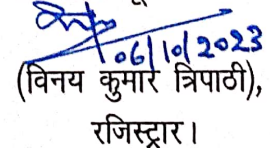 06/10/2023
(विनय कुमार त्रिपाठी),
रजिस्ट्रार।